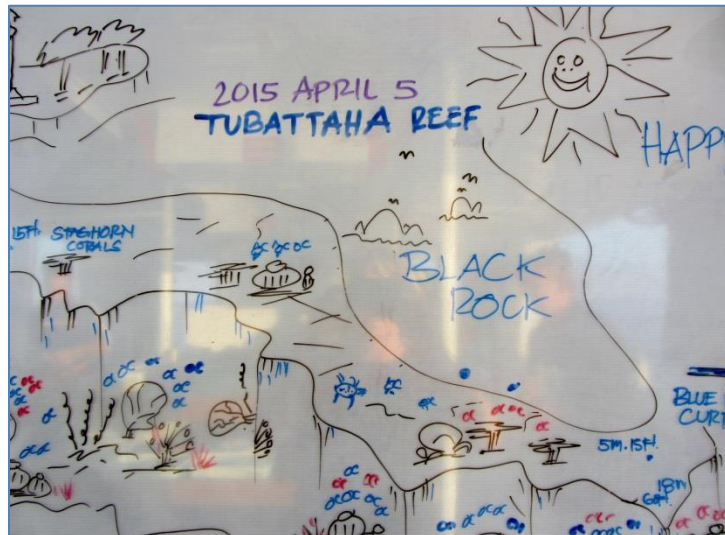 2015 APRIL 5
TUBATTAHA REEF
HAPPY
15ft. STAGHORN
CORALS
BLACK
ROCK
BLUE
CURT
5M.15Ft.
18m
60ft.